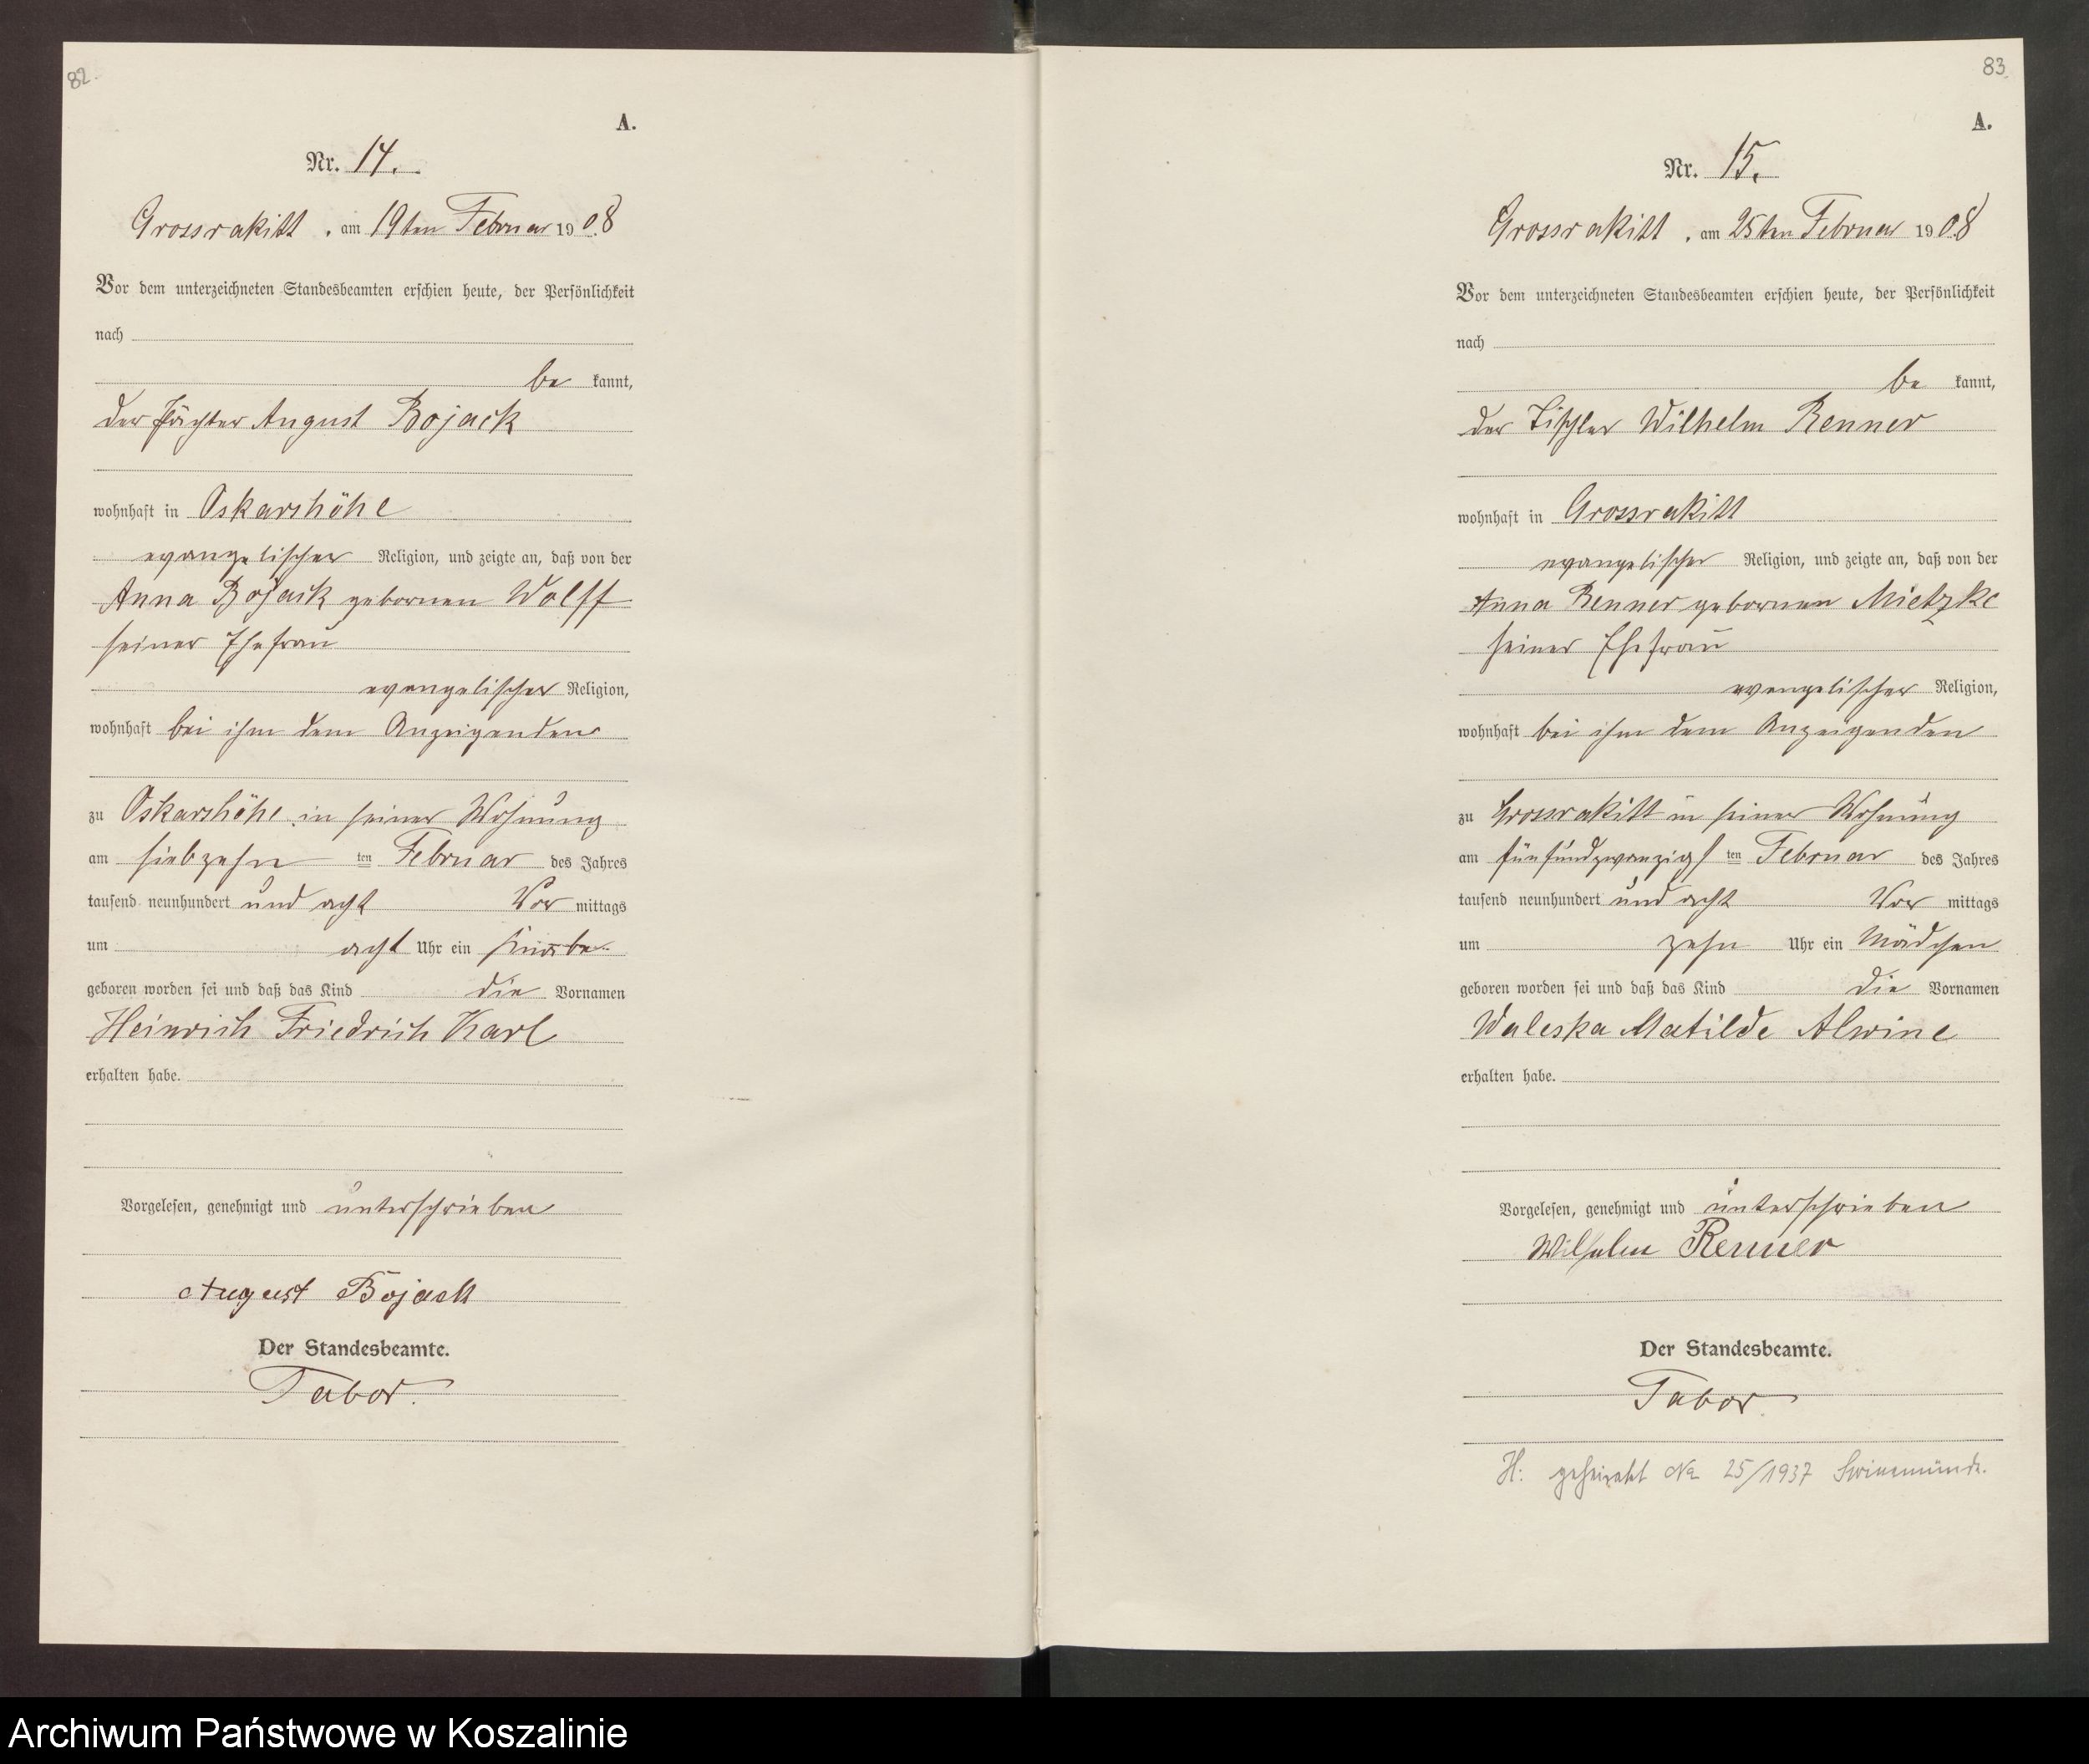 82.
A.
Nr. 14.
Grossrakitt, am 19ten Februar 1908
Vor dem unterzeichneten Standesbeamten erschien heute, der Persönlichkeit
nach
be kannt,
der Pächter August Bojack
wohnhaft in Oskarshöhe
evangelischer Religion, und zeigte an, daß von der
Anna Bojack gebornen Wolff
seiner Ehefrau
evangelischer Religion,
wohnhaft bei ihm dem Anzeigenden
zu Oskarshöhe in seiner Wohnung
am siebzehn ten Februar des Jahres
tausend neunhundert und acht Vor mittags
um acht Uhr ein Knabe
geboren worden sei und daß das Kind die Vornamen
Heinrich Friedrich Karl
erhalten habe.
Vorgelesen, genehmigt und unterschrieben
August Bojack
Der Standesbeamte.
Tabor.
83.
A.
Nr. 15.
Grossrakitt, am 25ten Februar 1908
Vor dem unterzeichneten Standesbeamten erschien heute, der Persönlichkeit
nach
be kannt,
der Tischler Wilhelm Renner
wohnhaft in Grossrakitt
evangelischer Religion, und zeigte an, daß von der
Anna Renner gebornen Mietzke
seiner Ehefrau
evangelischer Religion,
wohnhaft bei ihm dem Anzeigenden
zu Grossrakitt in seiner Wohnung
am fünfundzwanzigs ten Februar des Jahres
tausend neunhundert und acht Vor mittags
um zehn Uhr ein Mädchen
geboren worden sei und daß das Kind die Vornamen
Waleska Matilde Alwine
erhalten habe.
Vorgelesen, genehmigt und unterschrieben
Wilhelm Renner
Der Standesbeamte.
Tabor.
H: geheiratet No 25/1937 Swinemünde.
Archiwum Państwowe w Koszalinie